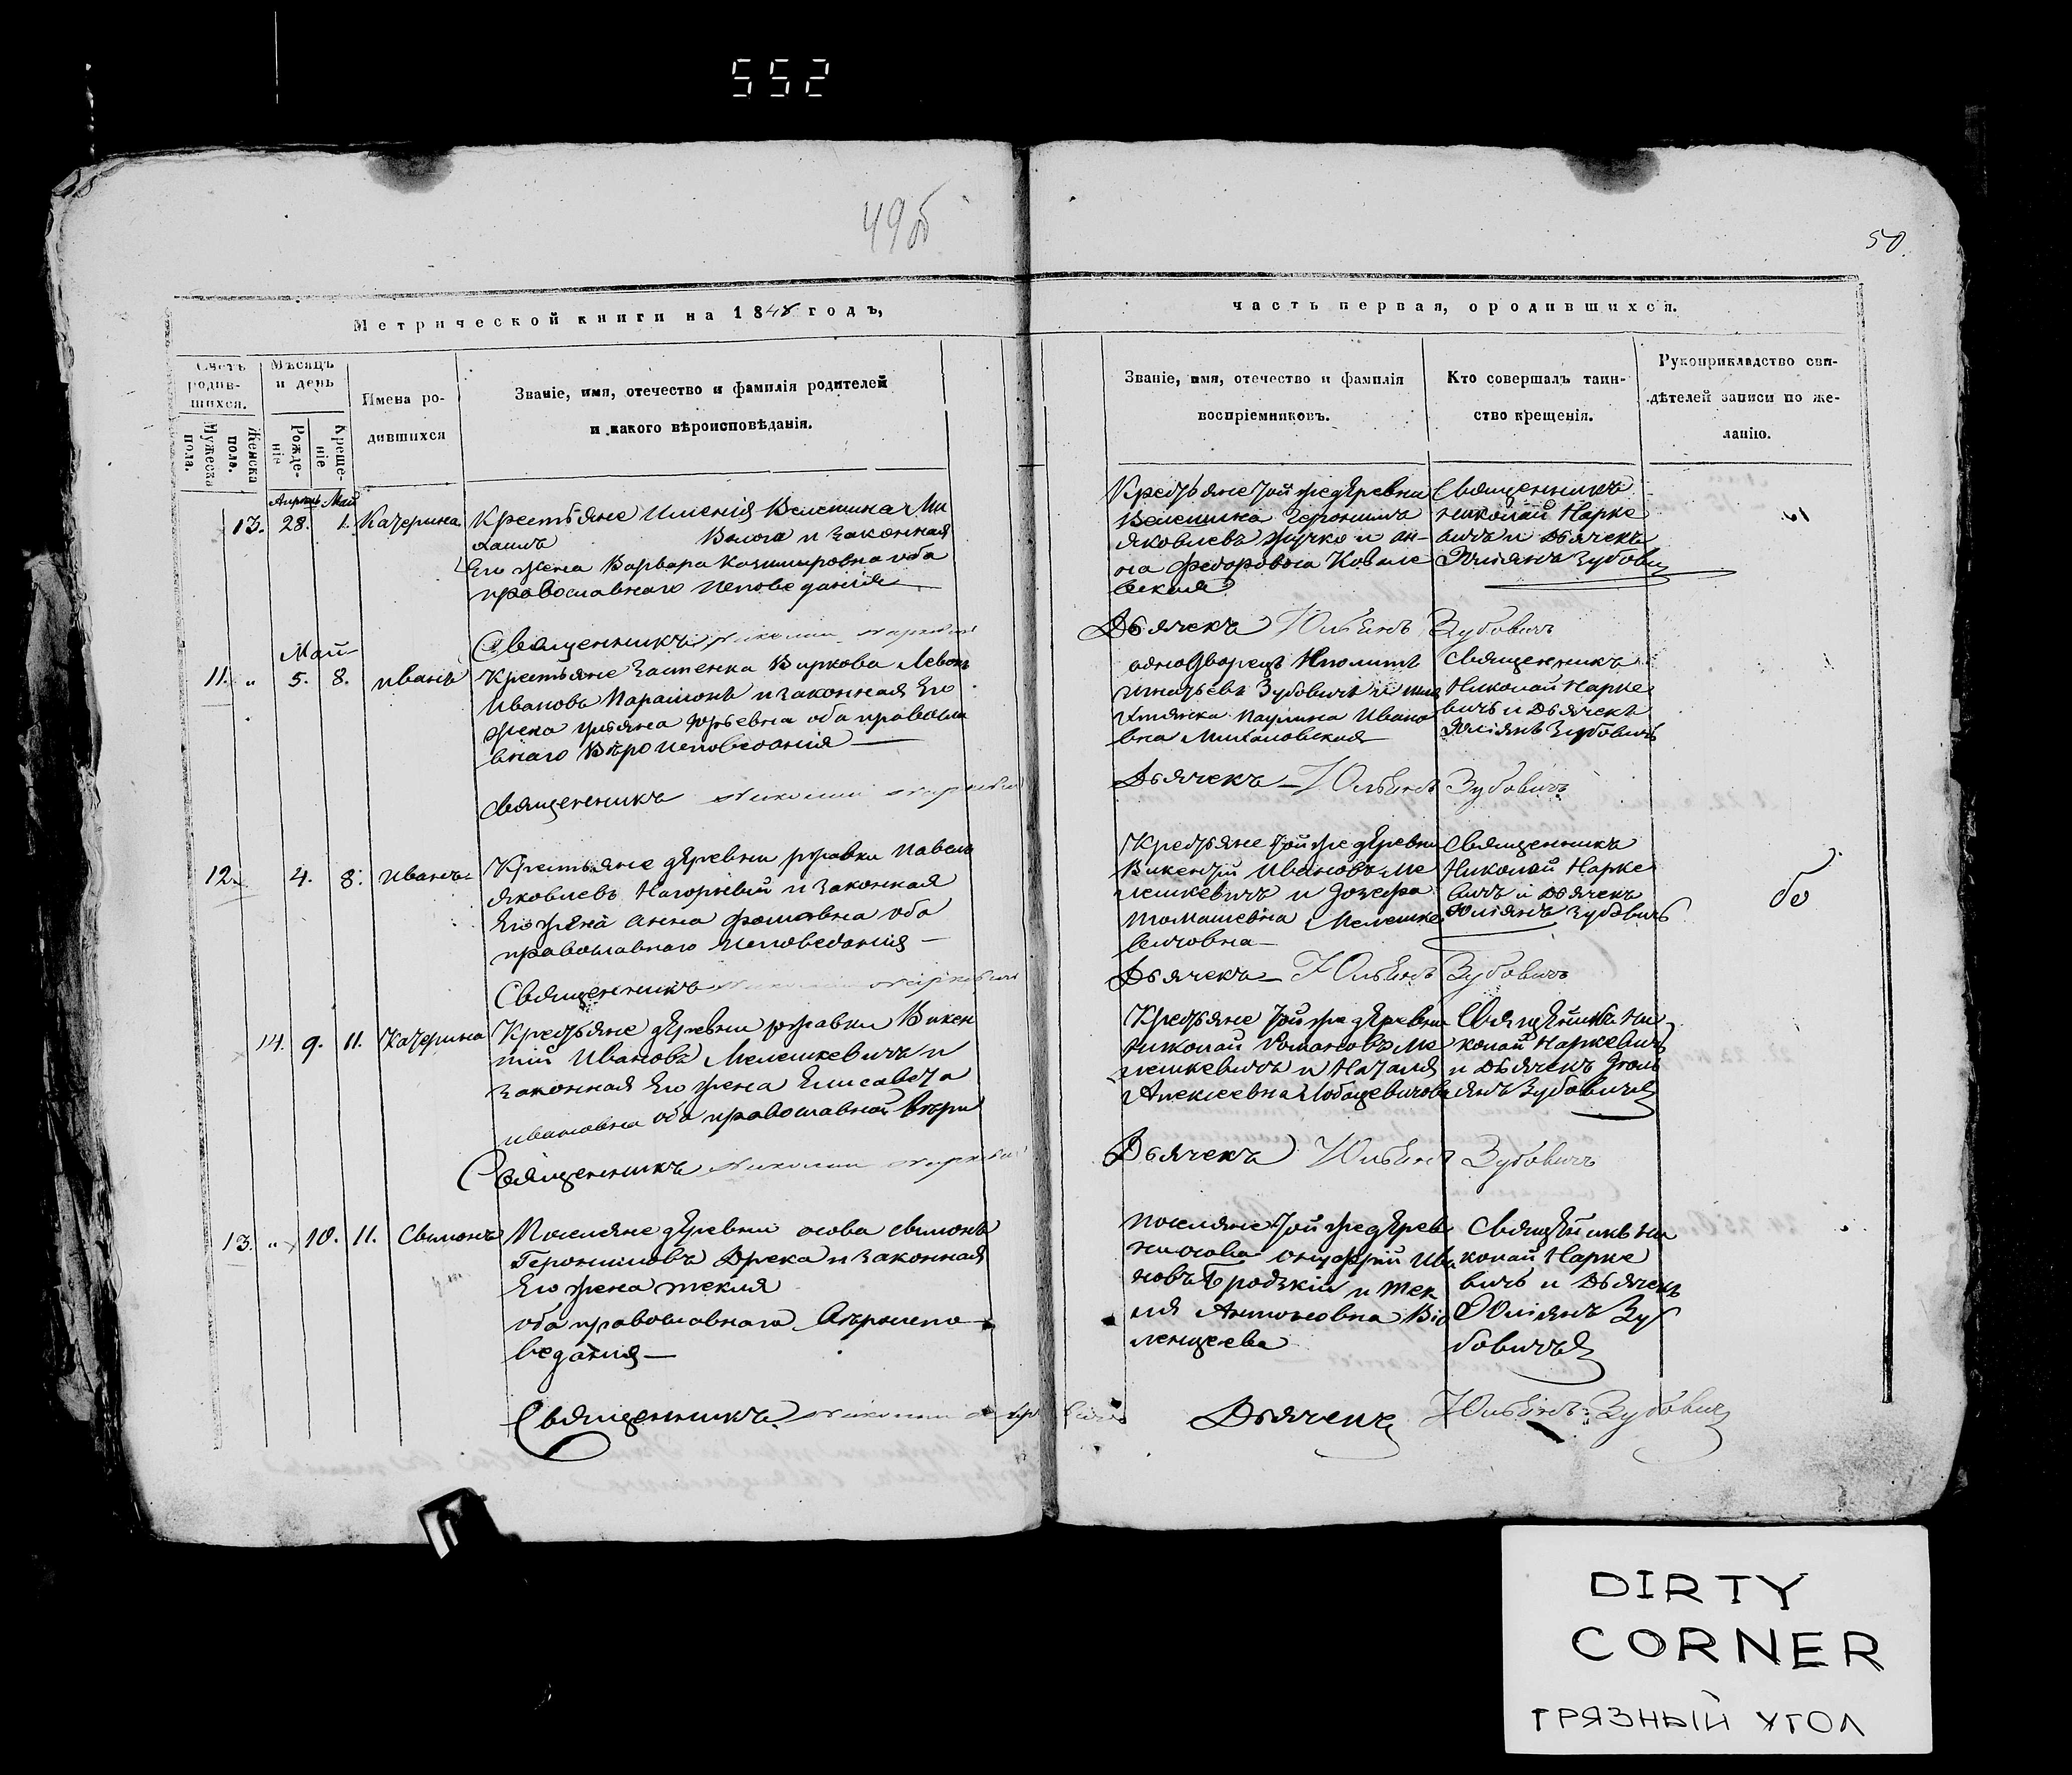 552
49 об
50.
Метрической книги на 1848 годъ,
часть первая, ородившихся.
Счетъ родив-шихся.
Мужеска пола.
Женска пола.
Мѣсяцъ и день
Рожде-ніе
Креще-ніе
Имена ро-
дившихся
Званіе, имя, отечество и фамилія родителей
и какого вѣроисповѣданія.
Званіе, имя, отечество и фамилія
воспріемниковъ.
Кто совершалъ таин-
ство крещенія.
Рукоприкладство сви-
дѣтелей записи по же-
ланію.
Апрель Май
13. 28. 1. Катерина
Крестьяне имения Велешина Ми
хаилъ Волога и законная
Его жена Варвара Казимировна оба
православнаго исповедания
Священникъ Николай Наркевич
Крестьяне той же деревни
Велешина Геронимъ
Яковлевъ Жучко и Ан-
на Федоровна Ковале
вская
Священникъ
Николай Нарке
вичъ и Дьячекъ
Юлiянъ Зубович
Дьячекъ Юльянъ Зубовичъ
Май
11. " 5. 8. Иванъ
Крестьяне Застенка Виркова Левон
Ивановъ Парамонъ и законная Его
жена Ульяна Юрьевна оба правосла
внаго Вероисповедания
Священникъ Николай Наркевич
однодворецъ Иполитъ
Игнатьевъ Зубовичъ и
Паулина Ивано
вна Михаловская
Священникъ
Николай Нарке
вичъ и Дьячекъ
Юлiянъ Зубовичъ
Дьячекъ Юльянъ Зубовичъ
12. 4. 8. Иванъ
Крестьяне деревни Ржавки Павелъ
Яковлевъ Нагорный и законная
Его жена Анна Фоминвна оба
православнаго исповедания
Священникъ Николай Наркевич
Крестьяне той же деревни
Викентий Ивановъ Ме
лешкевичъ и Иозефа
Томашевна Мелешке
вичовна
Священникъ
Николай Нарке
вичъ и Дьячекъ
Юлiянъ Зубовичъ
Дьячекъ Юльянъ Зубовичъ
14. 9. 11. Катерина
Крестьяне деревни Ржавки Викен
тий Ивановъ Мелешкевичъ и
законная Его жена Елисавета
Ивановна оба православной веры
Священникъ Николай Наркевич
Крестьяне той же деревни
Николай Романовъ Ме
лешкевичъ и Наталя
Алексеевна Лобацевичова
Священникъ Ни
колай Наркевичъ
и Дьячекъ Юль
янъ Зубовичъ
Дьячекъ Юльянъ Зубовичъ
13. " 10. 11. Симонъ
Поселяне деревни Осова Симонъ
Геронимовъ Древа и законная
Его жена Текля
оба православнаго Вероиспо
ведания
Священникъ Николай Наркевич
Поселяне той же дерев
ни Осова Онуфрий Ива
новъ Бродзкий и Тек
ля Антоновна
Священникъ Ни
колай Нарке
вичъ и Дьячекъ
Юлiянъ Зу
бовичъ
Дьячекъ Юльянъ Зубовичъ
DIRTY
CORNER
ГРЯЗНЫЙ УГОЛ